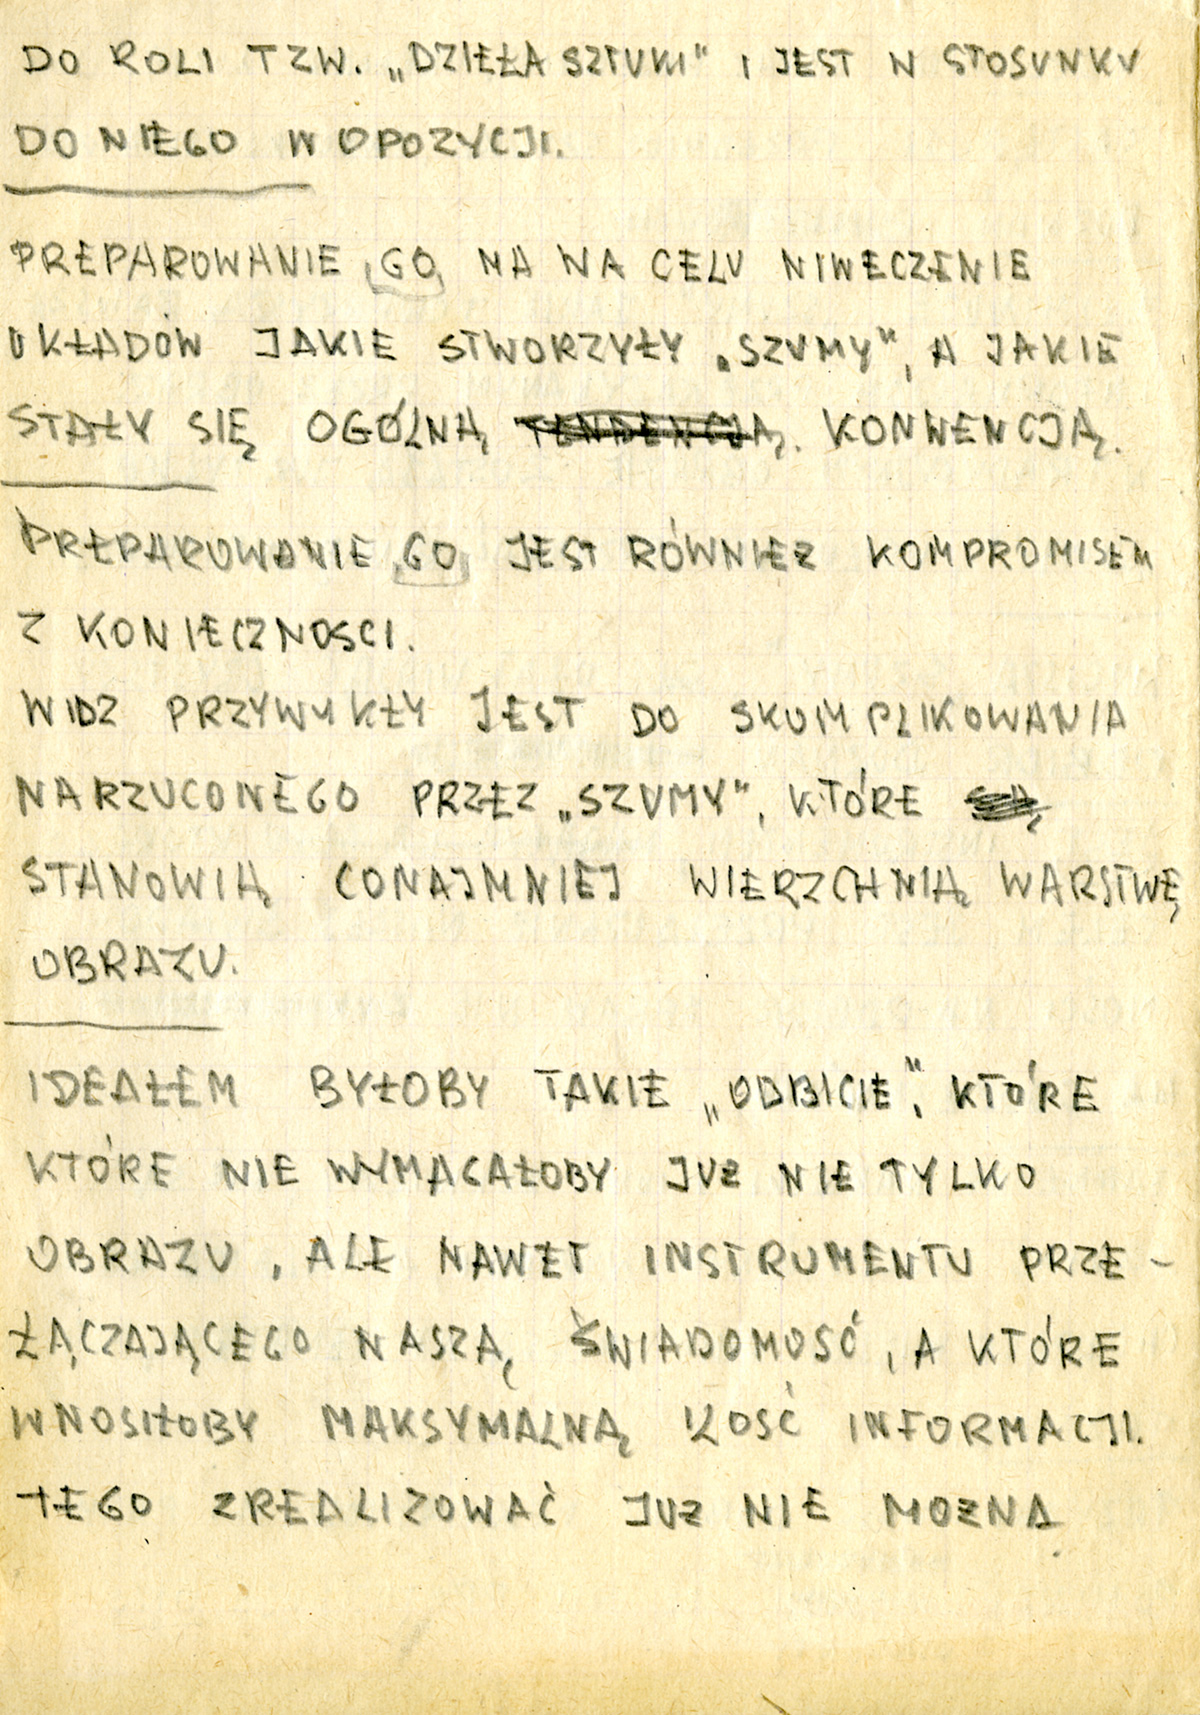 DO ROLI TZW. „DZIEŁA SZTUKI" I JEST W STOSUNKU
DO NIEGO W OPOZYCJI.
PREPAROWANIE GO MA NA CELU NIWECZENIE
UKŁADÓW JAKIE STWORZYŁY „SZUMY", A JAKIE
STAŁY SIĘ OGÓLNĄ TENDENCJĄ. KONWENCJĄ.
PREPAROWANIE GO JEST RÓWNIEŻ KOMPROMISEM
Z KONIECZNOSCI.
WIDZ PRZYWYKŁY JEST DO SKOMPLIKOWANIA
NARZUCONEGO PRZEZ „SZUMY", KTÓRE SĄ
STANOWIĄ CONAJMNIEJ WIERZCHNIĄ WARSTWĘ
OBRAZU.
IDEAŁEM BYŁOBY TAKIE „ODBICIE", KTÓRE
KTÓRE NIE WYMAGAŁOBY JUŻ NIE TYLKO
OBRAZU, ALE NAWET INSTRUMENTU PRZE-
ŁĄCZAJĄCEGO NASZĄ ŚWIADOMOSĆ, A KTÓRE
WNOSIŁOBY MAKSYMALNĄ ILOSĆ INFORMACJI.
TEGO ZREALIZOWAĆ JUŻ NIE MOŻNA